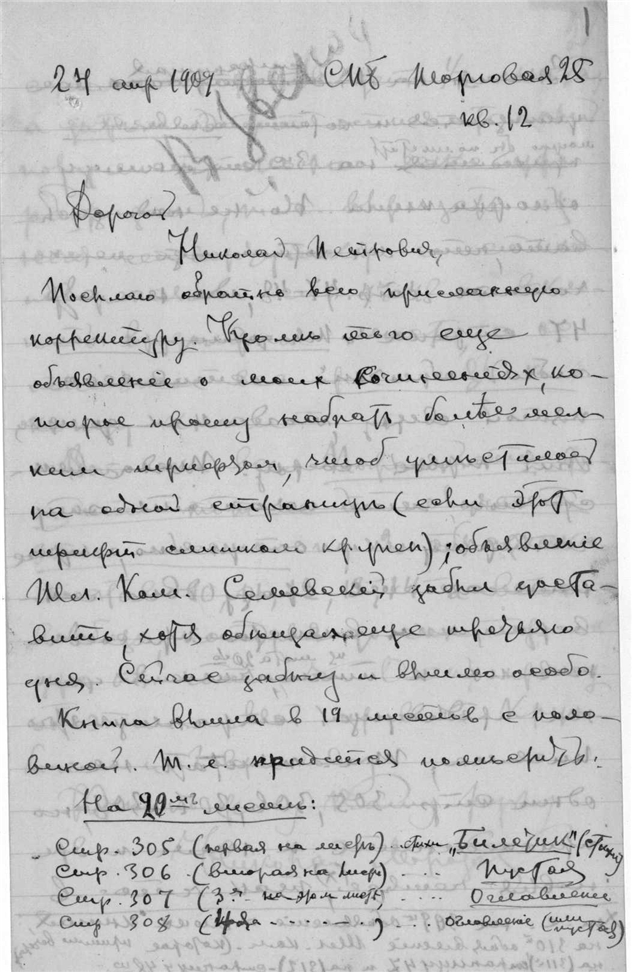 1
27 апр 1907 СПБ Торговая 25
кв. 12
Дорогой
Николай Петрович,
Посылаю обратно всю присланную
корректуру. Кроме того еще
объявление о моих сочинениях, ко-
торые прошу набрать болѣе мел-
ким шрифтом, чтоб уместилось
на одной странице (если этот
шрифт слишком крупен); объявление
Шел. Ком. Семевский забыл доста-
вить, хотя обещал еще третьяго
дня. Сейчас добуду и вышлю особо.
Книга вышла в 19 листов с поло-
виной. Т. е. придется
На 20мъ листѣ:
Стр. 305 (первая на листѣ) стихи „Билетик" (стихи)
Стр. 306 (вторая на листѣ) .... пустая
Стр. 307 (3ья на этом листѣ) .... Оглавление
Стр 308 ( ......) ... оглавление (или
пустая)